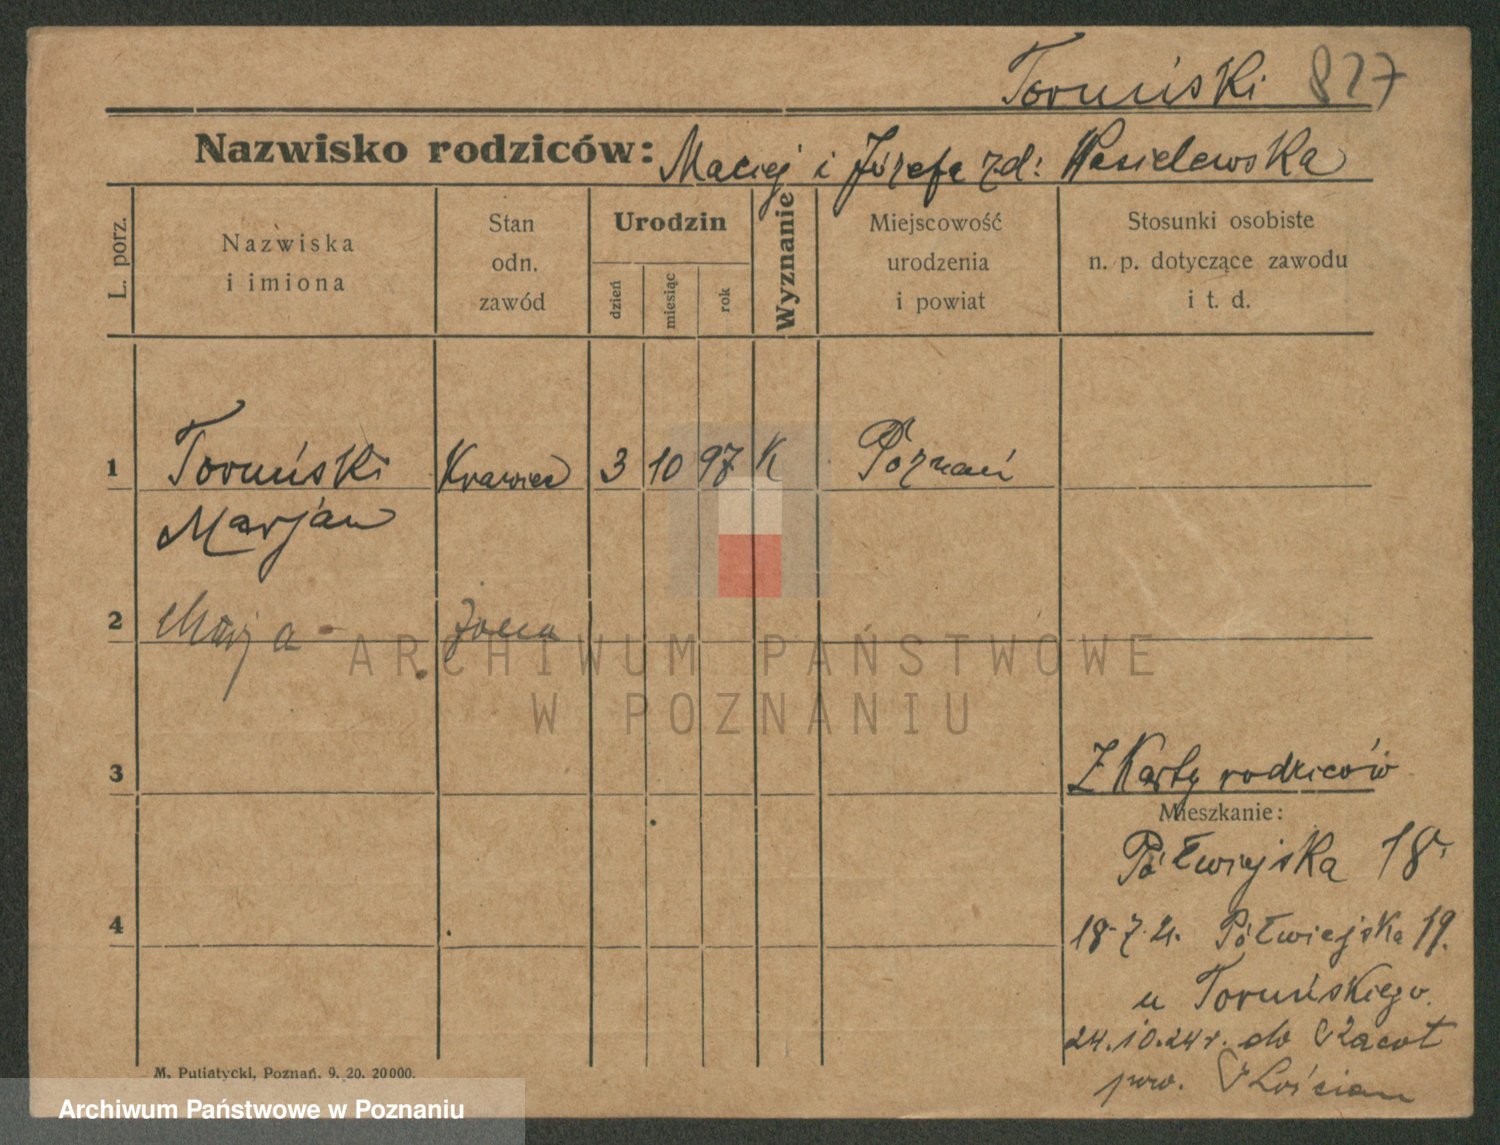 Toruński 827
Nazwisko rodziców: Maciej i Józefa zd: Wasielewska
L. porz.
Nazwiska
i imiona
Stan
odn.
zawód
Urodzin
dzień
miesiąc
rok
Wyznanie
Miejscowość
urodzenia
i powiat
Stosunki osobiste
n. p. dotyczące zawodu
i t. d.
1 Toruński Krawiec 3 10 97 K Poznań
Marjan
2 Marja żona
ARCHIWUM PAŃSTWOWE
W POZNANIU
3 Z Karty rodziców
Mieszkanie:
Półwiejska 18
4 18.7.21. Półwiejska 19.
u Toruńskiego.
24.10.24 r. do Racot
pow. Kościan
M. Putiatycki, Poznań. 9. 20. 20000.
Archiwum Państwowe w Poznaniu